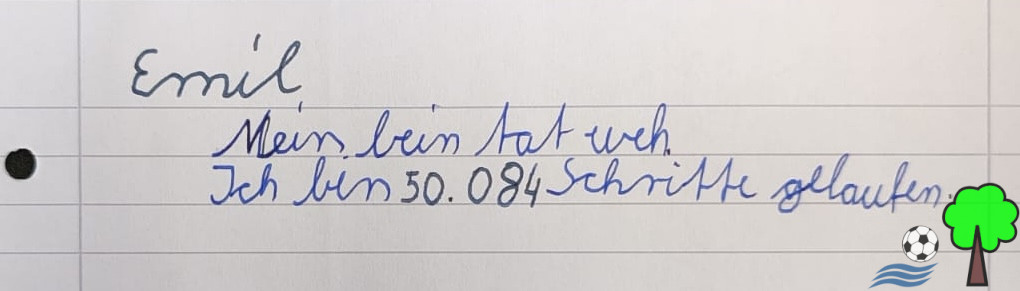 Emil
Mein bein tat weh.
Ich bin 50.084 Schritte gelaufen.